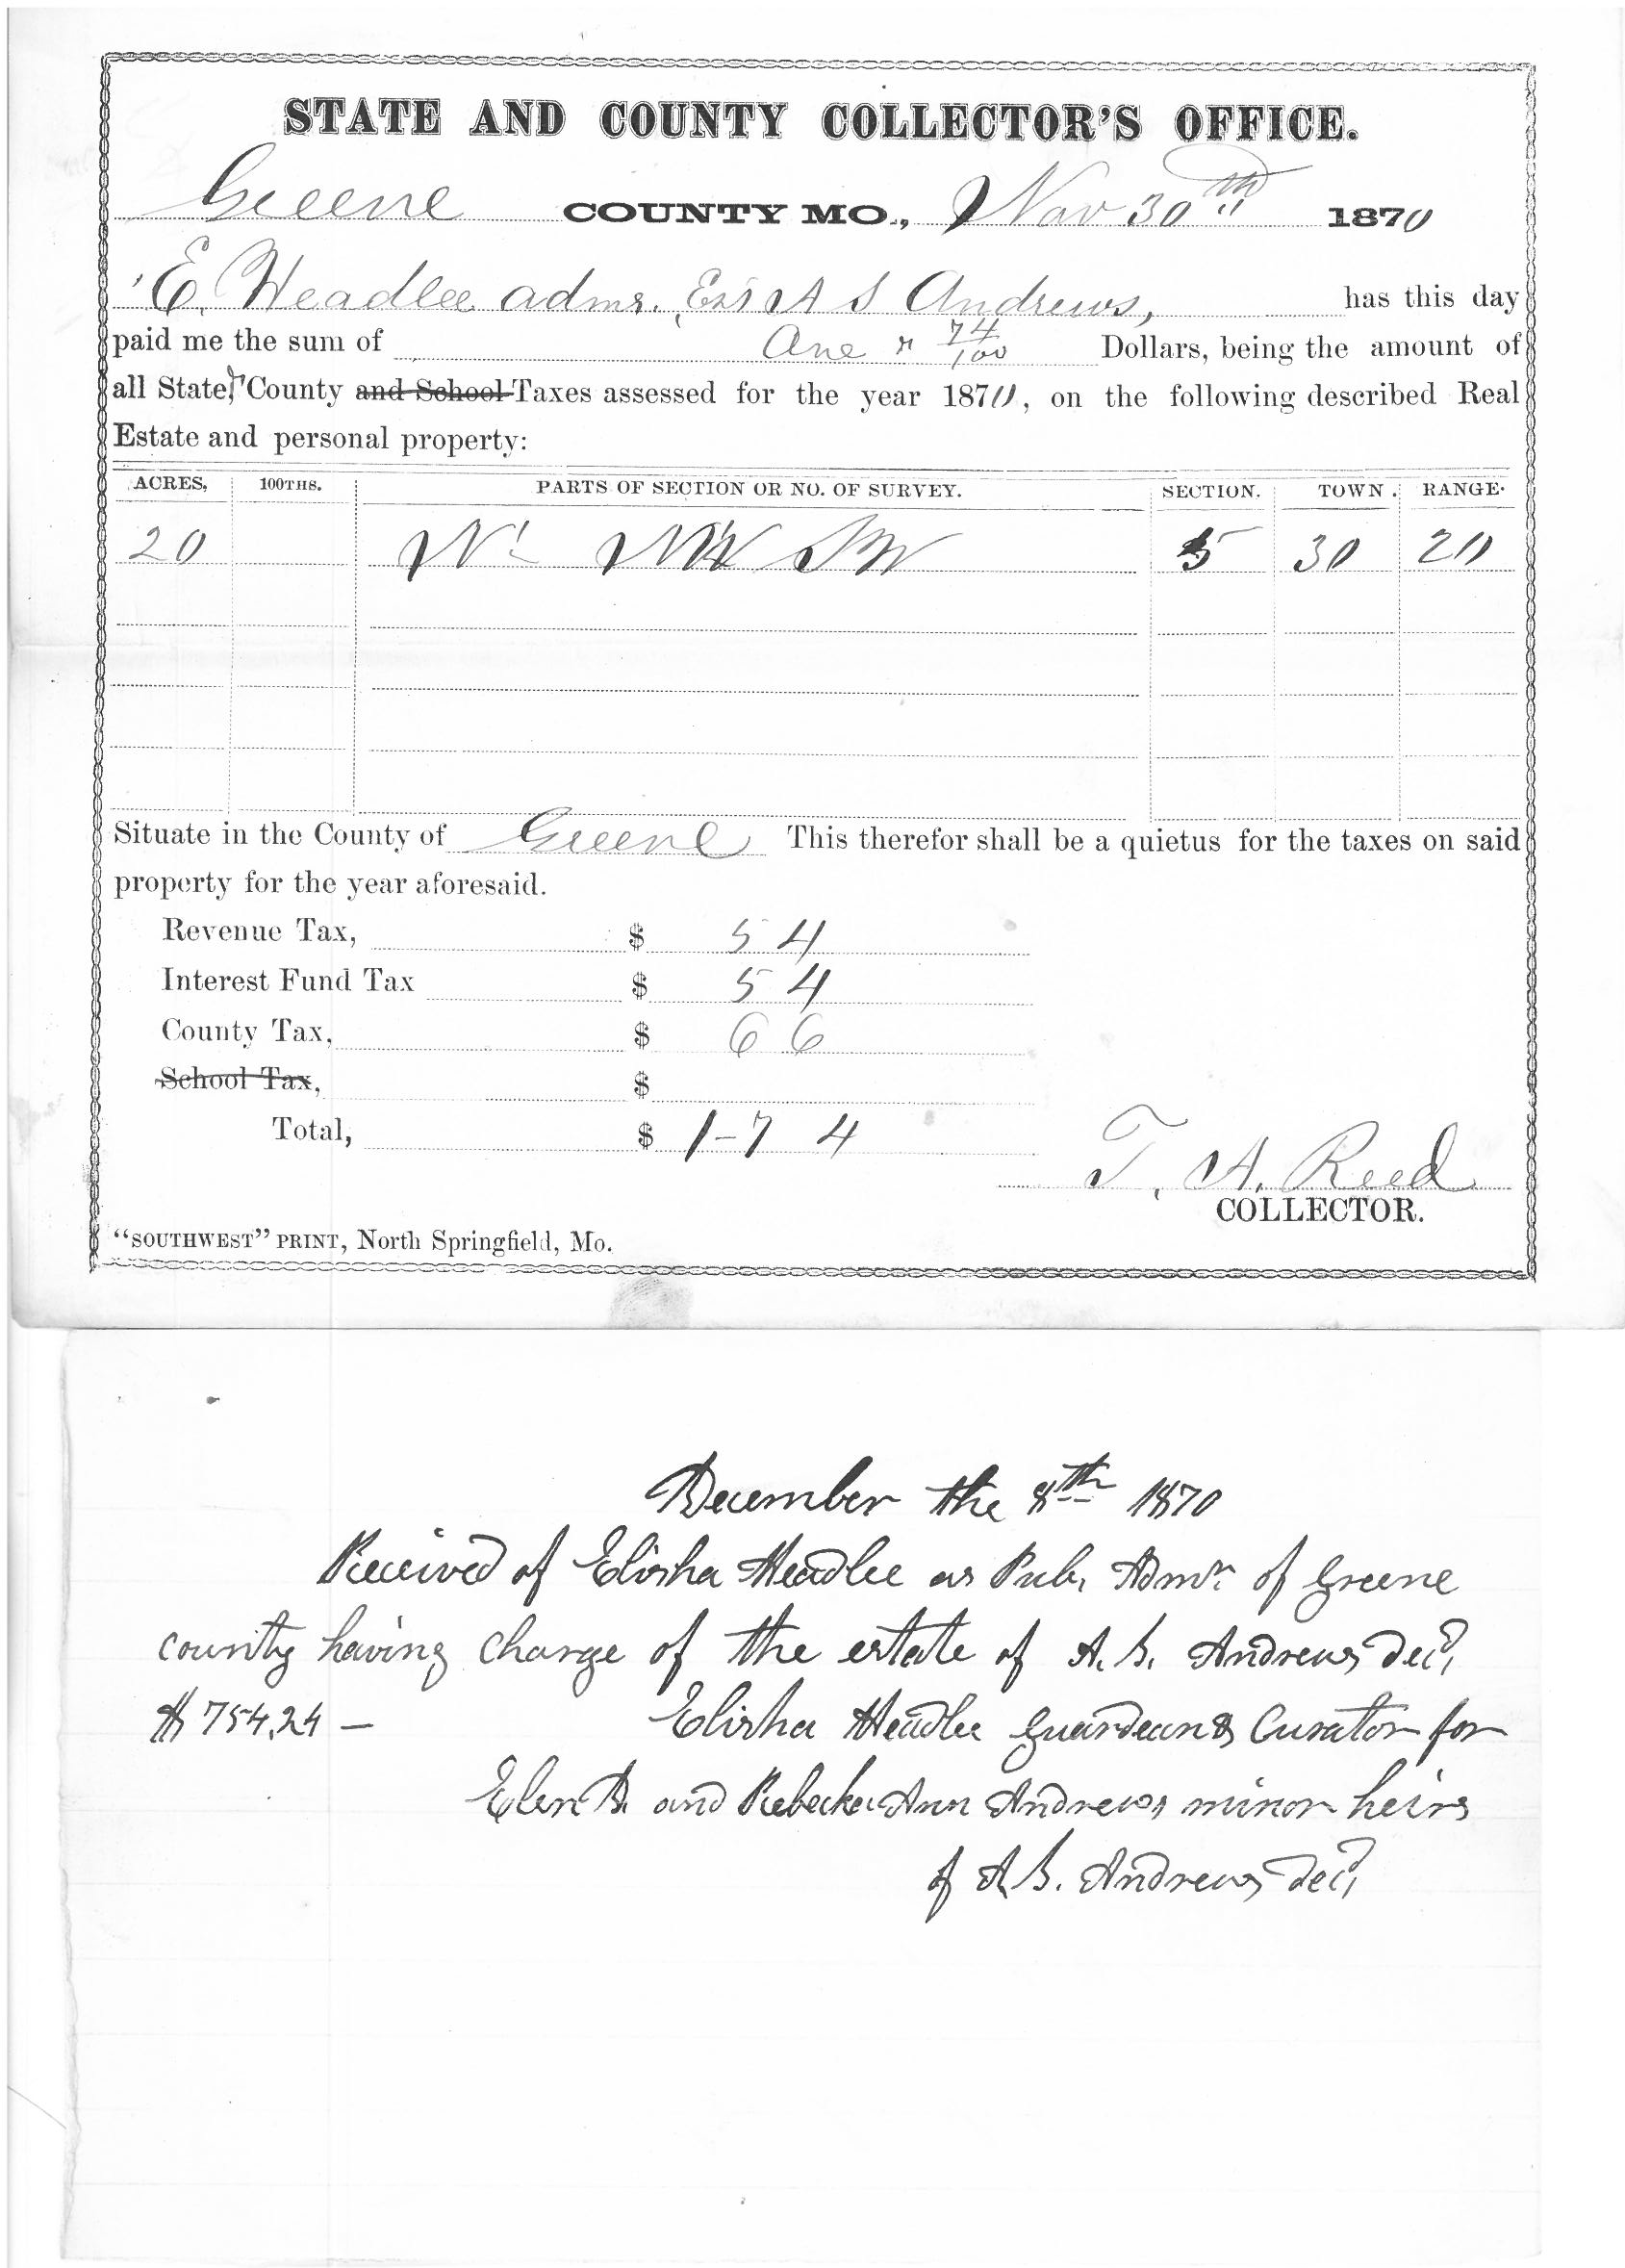 STATE AND COUNTY COLLECTOR'S OFFICE.
Greene COUNTY MO., Nov 30th 1870
E. Headlee admr. Est A S Andrews, has this day
paid me the sum of One & 74/100 Dollars, being the amount of
all State, & County and School Taxes assessed for the year 1870, on the following described Real
Estate and personal property:
ACRES, 100THS. PARTS OF SECTION OR NO. OF SURVEY. SECTION. TOWN. RANGE.
20 NW SW 5 30 20
Situate in the County of Greene This therefor shall be a quietus for the taxes on said
property for the year aforesaid.
Revenue Tax, $ 54
Interest Fund Tax $ 54
County Tax, $ 66
School Tax, $
Total, $ 1-74
T. A. Reed
COLLECTOR.
"SOUTHWEST" PRINT, North Springfield, Mo.
December the 8th 1870
Received of Elisha Headlee as Pub. Admr. of Greene
county having charge of the estate of A. S. Andrews Decd,
$754.24 — Elisha Headlee guardean & Curator for
Elen B. and Rebecka Ann Andrews minor heirs
of A. S. Andrews Decd,